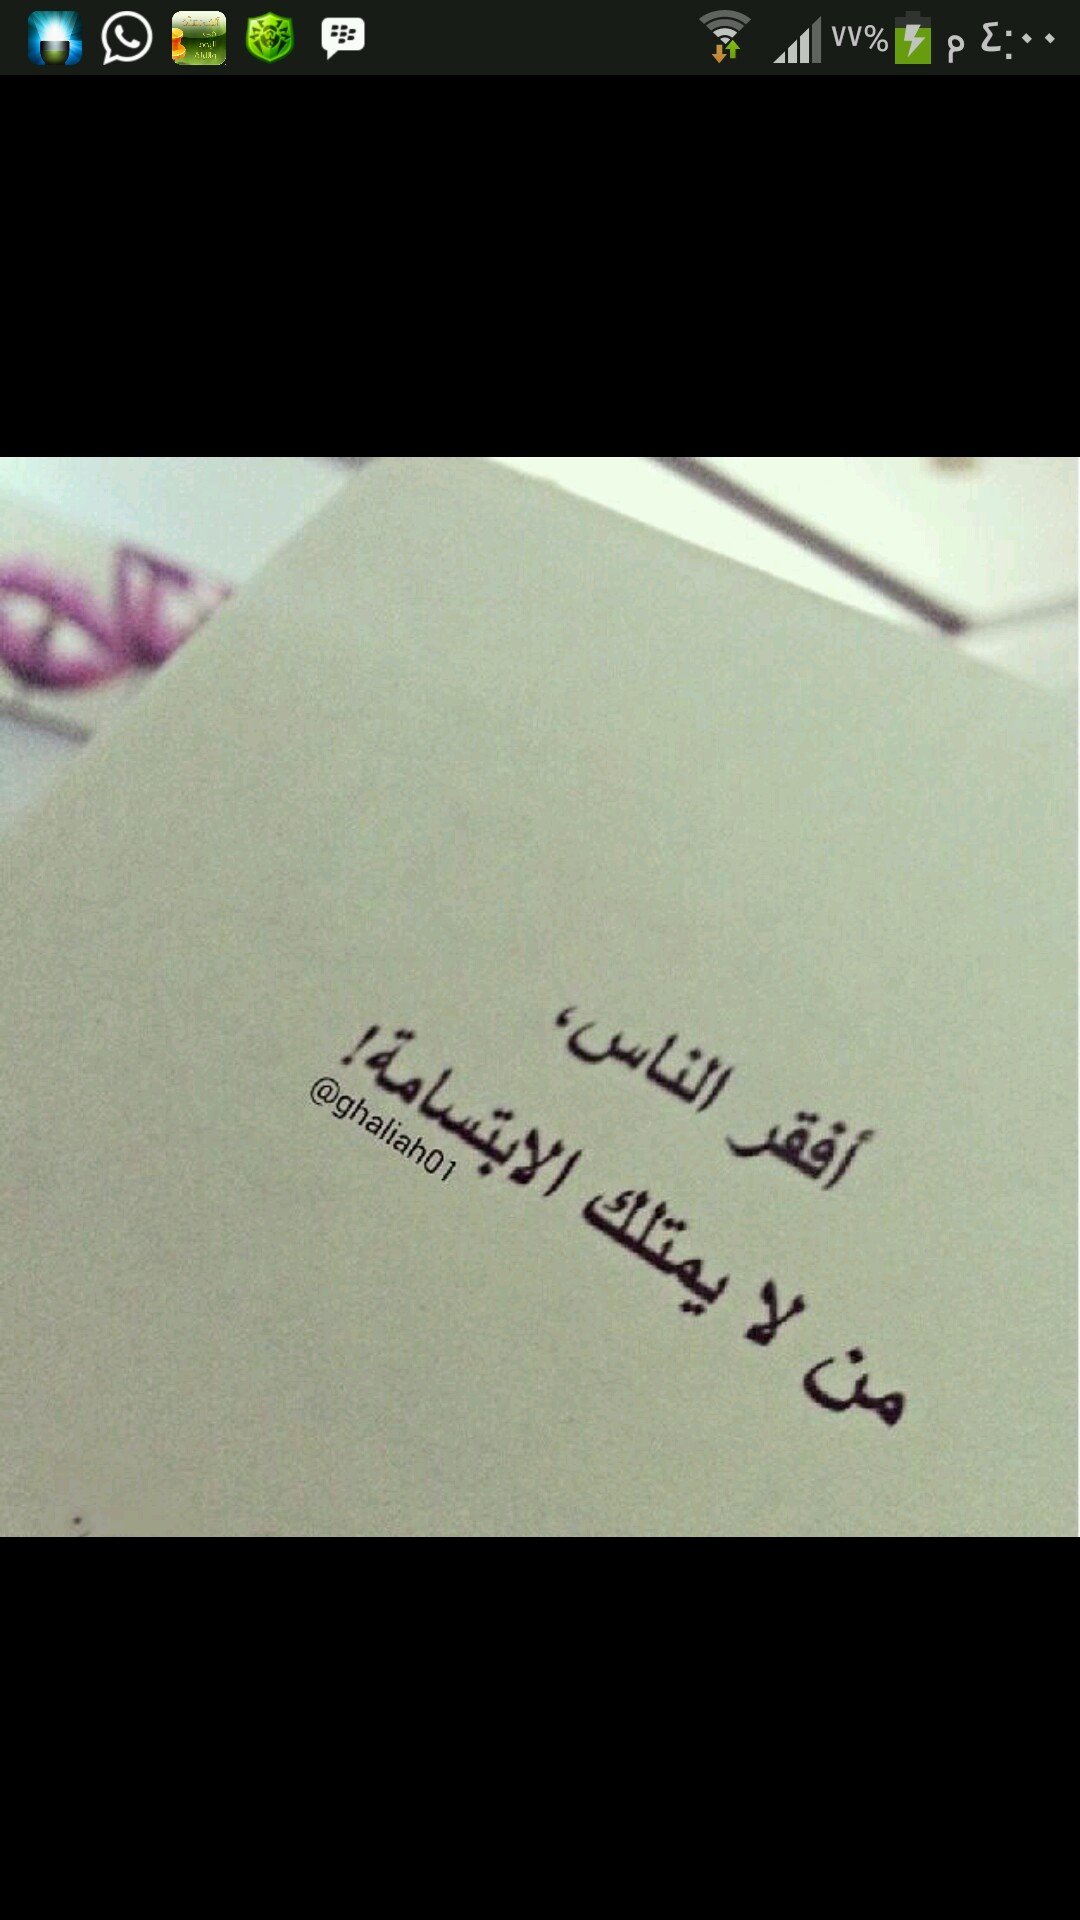 ٧٧% م ٤:٠٠
أفقر الناس،
من لا يمتلك الابتسامة!
@ghaliah01